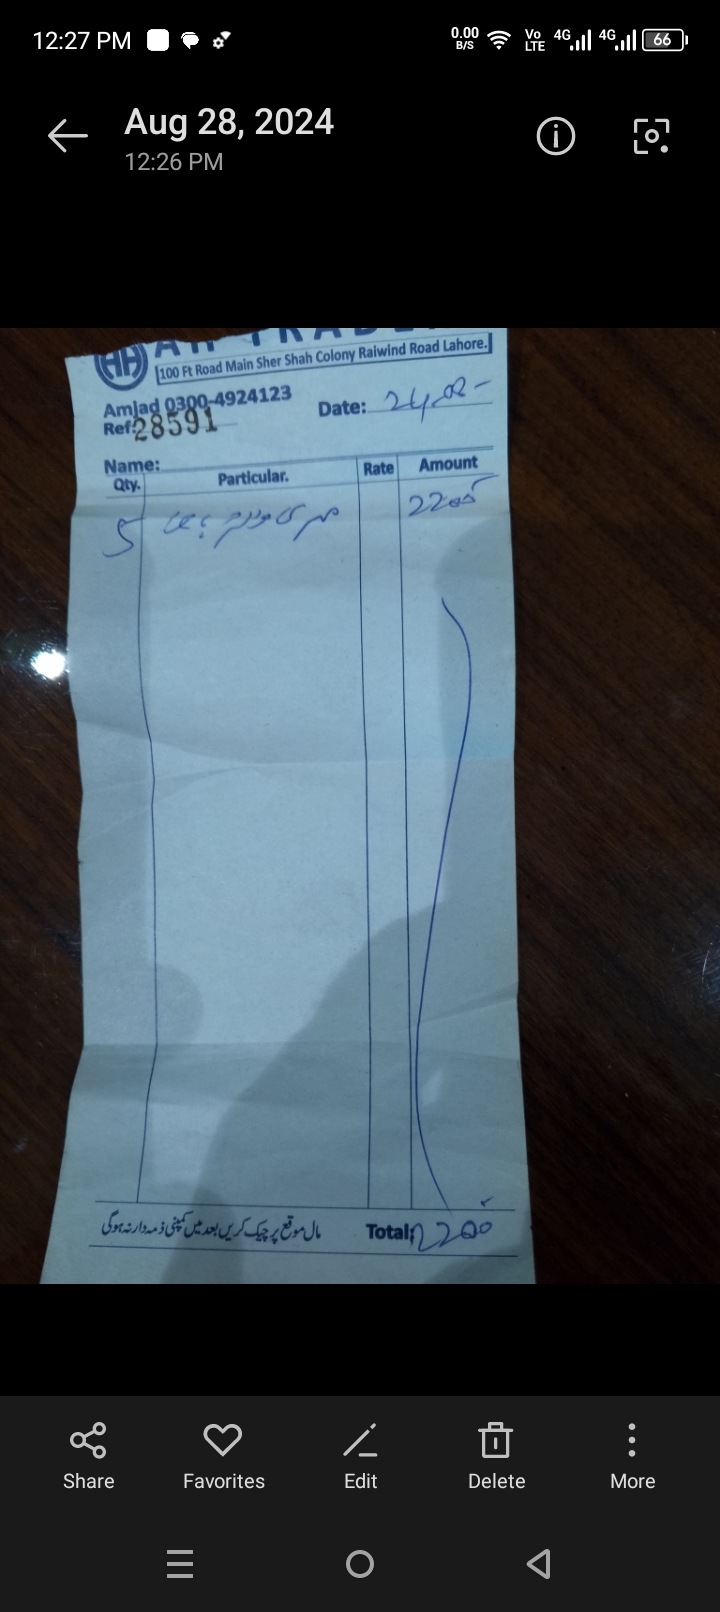 12:27 PM 0.00 B/S Vo LTE 4G 4G 66
Aug 28, 2024
12:26 PM
100 Ft Road Main Sher Shah Colony Raiwind Road Lahore.
Amjad 0300-4924123
Ref: 28591
Date:
Name:
Qty. Particular. Rate Amount
5 2200
مال موقع پر چیک کریں بعد میں کمپنی ذمہ دار نہ ہوگی
Total: 2200
Share Favorites Edit Delete More